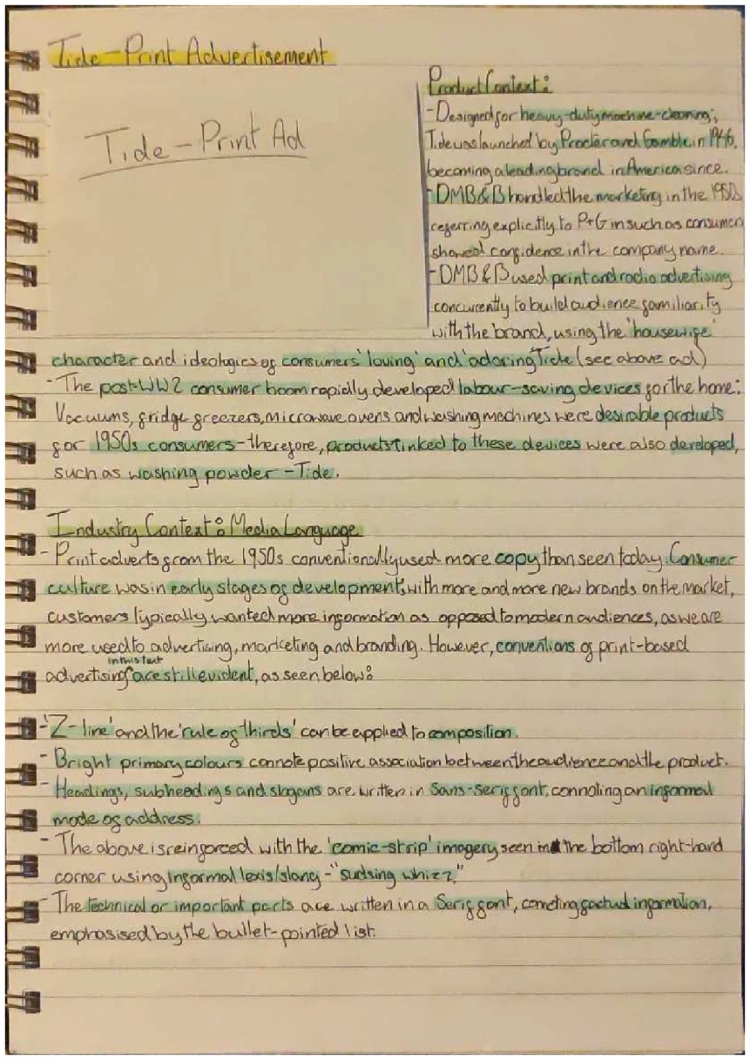 Tide-Print Advertisement
Tide-Print Ad
Product Context:
-Designed for heavy-duty machine-cleaning;
Tide was launched by Procter and Gamble in 1946,
becoming a leading brand in America since.
-DMB&B handled the marketing in the 1950s
referring explicitly to P+G in such as consumers
showed confidence in the company name.
-DMB&B used print and radio advertising
concurrently to build audience familiarity
with the brand, using the 'housewife'
character and ideologies of consumers 'loving' and 'adoring Tide' (see above ad)
-The post-WW2 consumer boom rapidly developed labour-saving devices for the home:
Vacuums, fridge freezers, microwave ovens and washing machines were desirable products
for 1950s consumers-therefore, products linked to these devices were also developed,
such as washing powder-Tide.
Industry Context: Media Language
-Print adverts from the 1950s conventionally used more copy than seen today. Consumer
culture was in early stages of development, with more and more new brands on the market,
customers typically wanted more information as opposed to modern audiences, as we are
more used to advertising, marketing and branding. However, conventions of print-based
in this text
advertising are still evident, as seen below:
-'Z-line' and the 'rule of thirds' can be applied to composition.
-Bright primary colours connote positive association between the audience and the product.
-Headings, subheadings and slogans are written in Sans-Serif font, connoting an informal
mode of address.
-The above is reinforced with the 'comic-strip' imagery seen in the bottom right-hand
corner using informal lexis/slang-"sudsing whizz"
-The technical or important parts are written in a Serif font, conoting factual information,
emphasised by the bullet-pointed list.